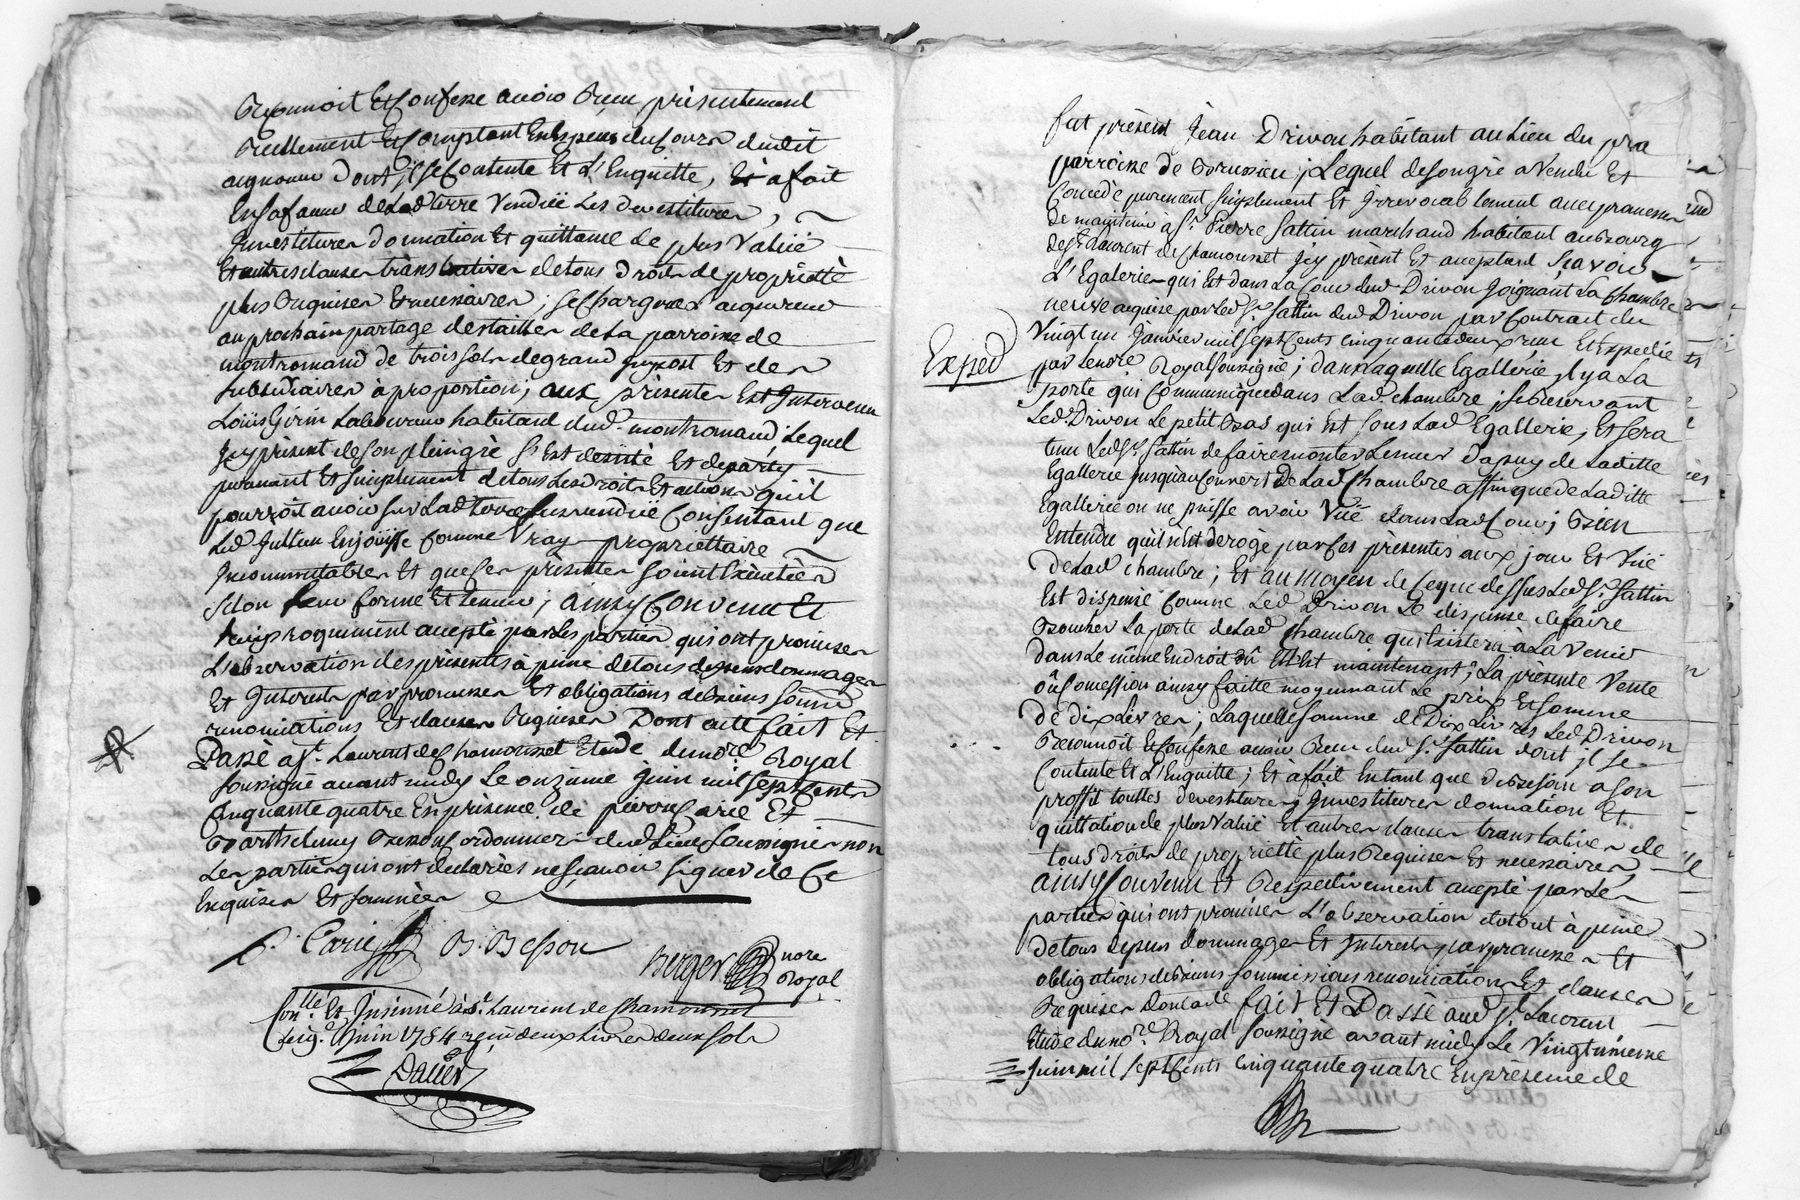 Reconnoit et confesse avoir reçu présentement
reellement et comptant en espèces du cours dudit
acquereur dont il se contente et l'enquitte, et a fait
en sa faveur de lad terre venduë les devestitures,
investitures donnation et quittance de plus valüe
et autres clauses translatives de tous droits de propriété
plus requises et necessaires; se chargera l'acquereur
au prochain partage des tailles de la parroisse de
montromand de trois sols de grand impost et des
subsidiaires à proportion; aux présentes est intervenu
Loüis Girin laboureur habitant dud. montromand, Lequel
icy présent de son plein gré s'est desisté et departy
purement et simplement de tous les droits et actions qu'il
pourroit avoir sur lad terre sus venduë consentant que
led enjoüisse comme vray proprietaire
incommutable et que ces présentes soient executées
selon leur forme et teneur; ainsy convenu et
reciproquement accepté par les parties qui ont promises
l'observation des présentes à peine de tous depens dommages
et interests par promesses et obligations de biens soumis
renonciations et clauses requises Dont acte fait et
Passé a St. Laurent de chamousset Etude du no.re Royal
soussigné avant midy le onzieme juin mil sept cents
cinquante quatre en présence de pierre Carié et
Barthelemy Besson cordonniers dud lieu soussignés non
les parties qui ont declarées ne sçavoir signer de ce
enquises et sommées
P. Carié B. Besson
Berger no.re
Royal
Con.llé et Insinué à St. Laurent de Chamousset
le juin 1754 reçu deux livres deux sols
Daver
fut présent Jean Drivon habitant au Lieu du pra
parroisse de Brussieu; Lequel de son gré a vendu et
concedé purement simplement et irrevocablement avec promesse
de maintenir à Sr. Pierre Sattin marchand habitant au bourg
de St Laurent de chamousset icy présent et acceptant sçavoir
L'Egalerie qui est dans la cour dud Drivon joignant la chambre
neuve acquise par led Sr Sattin dud Drivon par contrait du
vingt un janvier mil sept cents cinquante deux reçu et expedié
Exped
par le no.re Royal soussigné; dans laquelle Egallerie il y a la
porte qui communique dans lad. chambre; se reservant
led. Drivon le petit bas qui est sous lad Egallerie, et sera
tenu led Sr. Sattin de faire monter le mur d'apuy de laditte
Egallerie jusqu'au couvert de lad chambre affin que de laditte
Egallerie on ne puisse avoir vüe dans lad cour; bien
entendu qu'il n'est derogé par ces présentes aux jour et vüe
de lad chambre; Et au moyen de ce que dessus led Sr. Sattin
est dispensé comme led Drivon le dispense de faire
boucher la porte de lad chambre qui existera à la venir
dans le même endroit où elle est maintenant; La présente vente
où concession ainsy faitte moyennant le prix et somme
de dix Livres; Laquelle somme de Dix Livres led Drivon
Reconnoit et confesse avoir reçu dud Sr. Sattin dont il se
contente et l'enquitte; et a fait entant que de besoin a son
proffit touttes devestitures investitures donnation et
quittation de plus valüe et autres clauses translatives de
tous droits de propriette plus requises et necessaires,
ainsy convenu et respectivement accepté par les
parties qui ont promises l'observation du tout à peine
de tous depens dommages et interests par promesses et
obligations de biens soumissions renonciations et clauses
requises dont acte fait et Passé aud St. Laurent
etude du no.re Royal soussigné avant midy le vingtuneme
juin mil sept cents cinquante quatre en présence de